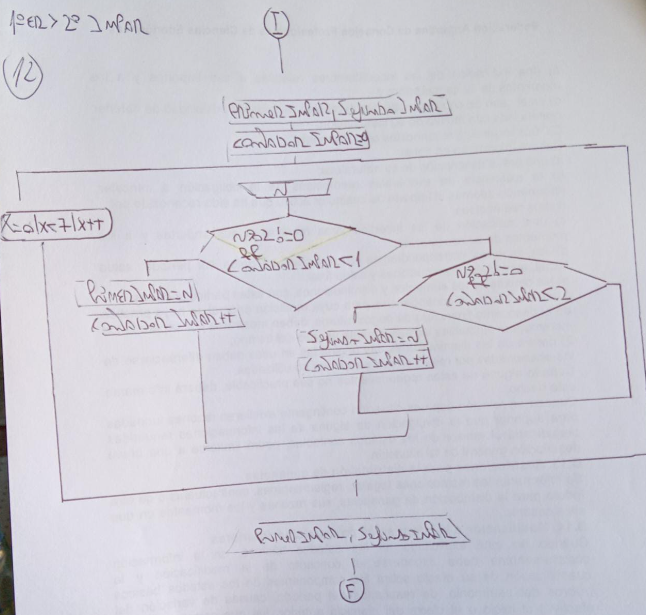 1º ER > 2º IMPAR
12
I
PRIMER IMPAR, SEGUNDO IMPAR
CONTADOR IMPAR=0
N
X=0|X<7|X++
N%2!=0
&&
CONTADOR IMPAR<1
N%2!=0
&&
CONTADOR IMPAR<2
PRIMER IMPAR=N
CONTADOR IMPAR++
SEGUNDO IMPAR=N
CONTADOR IMPAR++
PRIMER IMPAR, SEGUNDO IMPAR
F